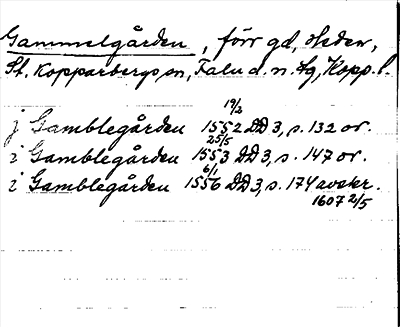 Gammelgården, förr gd, Heden,
St. Kopparbergs sn, Falu d. n. tg, Kopp. l.
19/2
j Gamblegården 1552 DD 3, s. 132 or.
25/5
i Gamblegården 1553 DD 3, s. 147 or.
6/1
i Gamblegården 1556 DD 3, s. 174 avskr.
1607 2/5